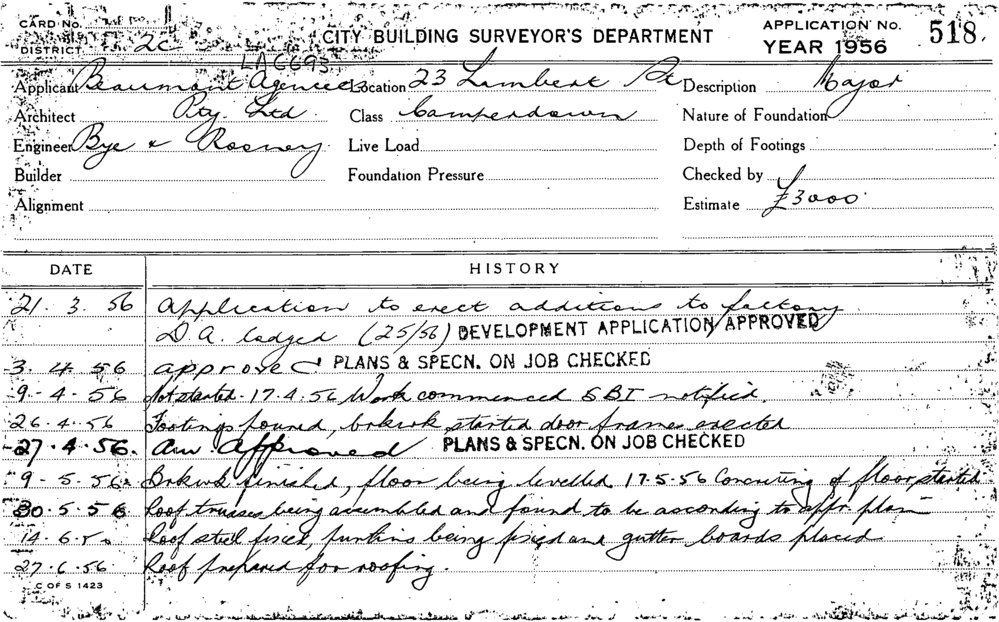 CARD No.
DISTRICT 2c
CITY BUILDING SURVEYOR'S DEPARTMENT
APPLICATION No. 518.
YEAR 1956
LA6693
Applicant Beaumont Agencies Location 23 Lambert St Description Major
Architect Pty. Ltd Class Camperdown Nature of Foundation
Engineer Bye & Rooney Live Load Depth of Footings
Builder Foundation Pressure Checked by
Alignment Estimate £3000
DATE HISTORY
21. 3. 56 Application to erect additions to factory
D.A. lodged (25/56) DEVELOPMENT APPLICATION APPROVED
3. 4. 56 approved PLANS & SPECN. ON JOB CHECKED
9 - 4 - 56 Not started. 17.4.56 Work commenced SBI notified.
26.4.56 Footings poured, brkwk started door frames erected
27.4.56. Am Approved PLANS & SPECN. ON JOB CHECKED
9 - 5 - 56. Brkwk finished, floor being levelled 17-5-56 Concreting of floor started
30.5.56 Roof trusses being assembled and found to be according to appr. plan
14.6.5 Roof steel fixed, purlins being fixed and gutter boards placed
27.6.56 Roof prepared for roofing.
C OF S 1423